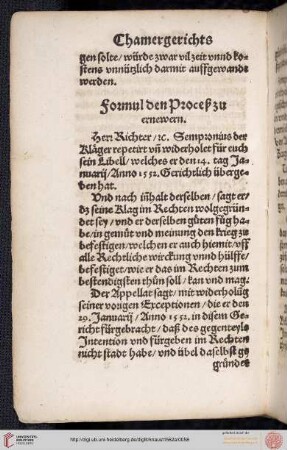 Chamergerichts
gen solte/ würde zwar vil zeit vnnd ko-
stens vnnützlich darmit auffgewandt
werden.
Formul den Proceß zu
ernewern.
Herr Richter/ ꝛc. Sempronius der
Kläger repetirt vñ widerholet für euch
sein Libell/ welches er den 14. tag Ja-
nuarij/ Anno 1552. Gerichtlich überge-
ben hat.
Vnd nach inhalt derselben/ sagt er/
dz seine Klag im Rechten wolgegrün-
det sey/ vnd er derselben gůten fůg ha-
be/ in gemůt vnd meinung den krieg zu
befestigen/ welchen er auch hiemit/ vff
alle Rechtliche wirckung vnnd hülffe/
befestiget/ wie er das im Rechten zum
bestendigsten thůn soll/ kan vnd mag.
Der Appellat sagt/ mit widerholũg
seiner vorigen Exceptionen/ die er den
29. Januarij/ Anno 1552. in disem Ge-
richt fürgebracht/ daß des gegenteyls
Intention vnd fürgeben im Rechten
nicht stadt habe/ vnd übel daselbst ge-
gründet
http://digi.ub.uni-heidelberg.de/diglit/
UNIVERSITÄTS-
BIBLIOTHEK
HEIDELBERG